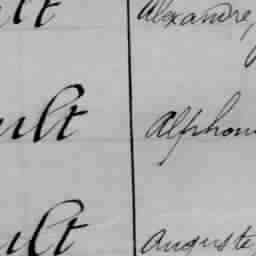 ult Alexandre,
ult Alphon
ult Auguste